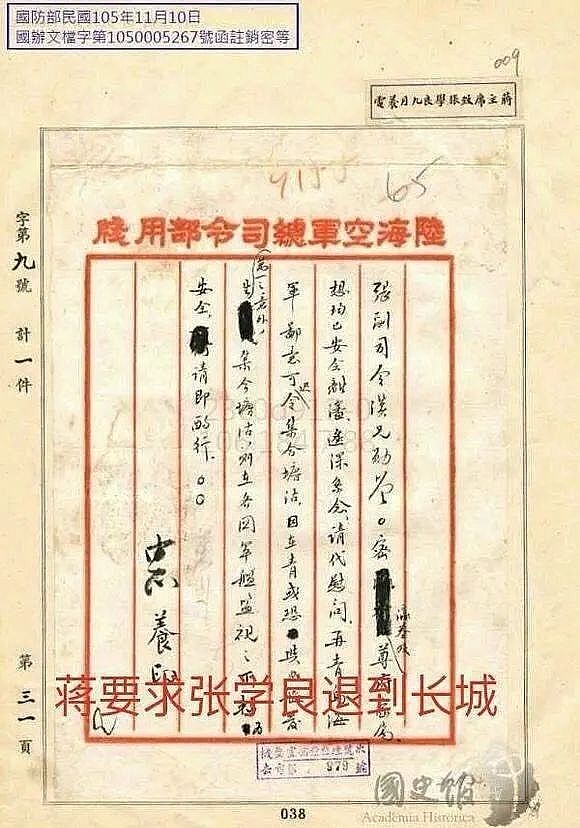 國防部民國105年11月10日
國辦文檔字第1050005267號函註銷密等
009
蔣主席致張學良九月養電
65
陸海空軍總司令部用牋
張副司令漢兄勛鑒。密尊府家屬
想均已安全離瀋遠深系念、請代慰問、再青島海
軍鄙意可遷令集合塘沽、因在青或恐
集合塘沽、則在各國軍艦監視之下
安全、請即酌行、
中正養印
字第九號 計一件
第三一頁
蒋要求张学良退到长城
979
國史館
Academia Historica
038